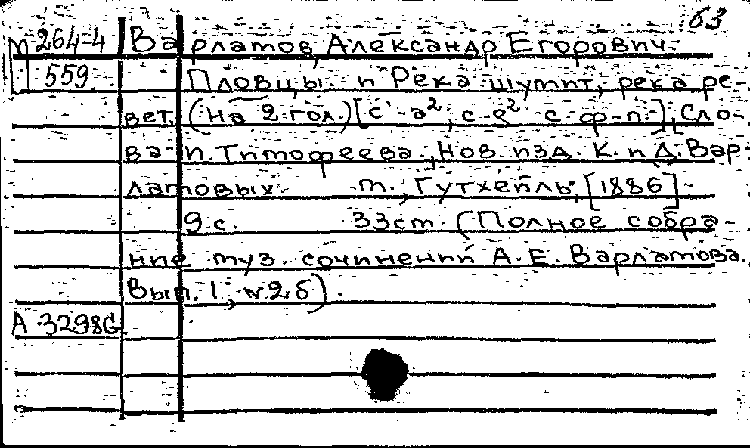 63
М 264-4 Варламов, Александр Егорович.
559 Пловцы. "Река шумит, река ре-
вет" (На 2 гол.) [c'-a², c-g² с ф-п.], Сло-
ва И. Тимофеева, Нов. изд. К. и Д. Вар-
ламовых. М., Гутхейль, [1886].
9 с. 33см (Полное собра-
ние муз. сочинений А. Е. Варламова.
Вып. 1, №2б).
А 3298G